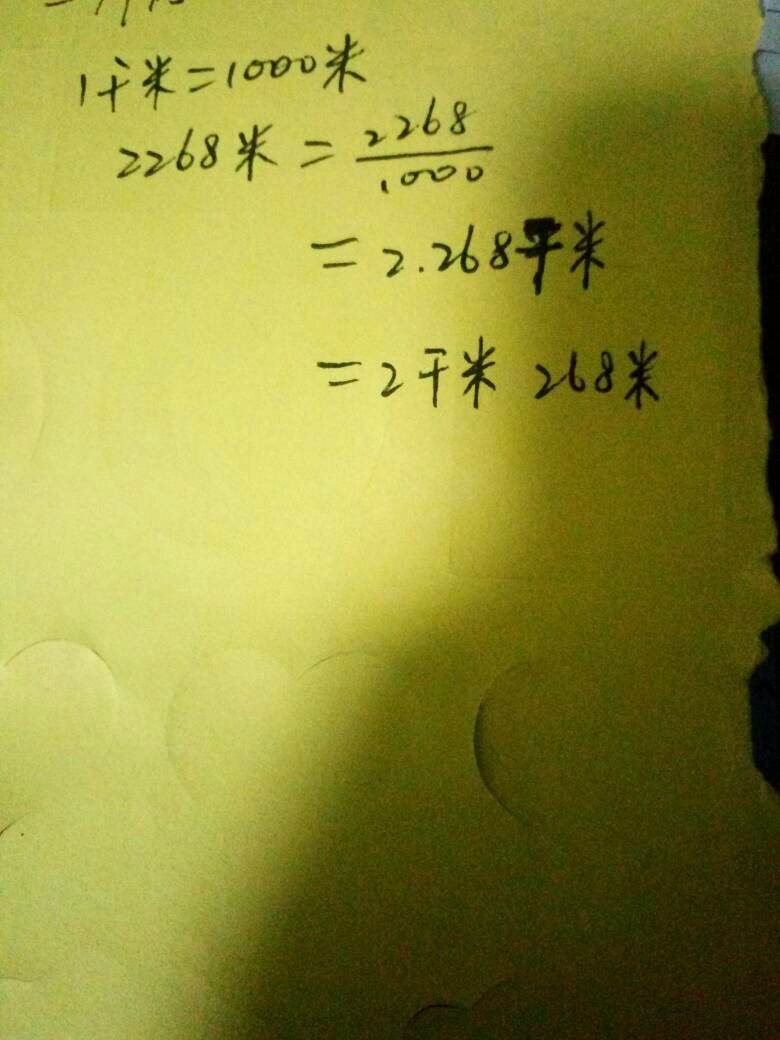 1千米=1000米
2268米=2268/1000
=2.268千米
=2千米 268米